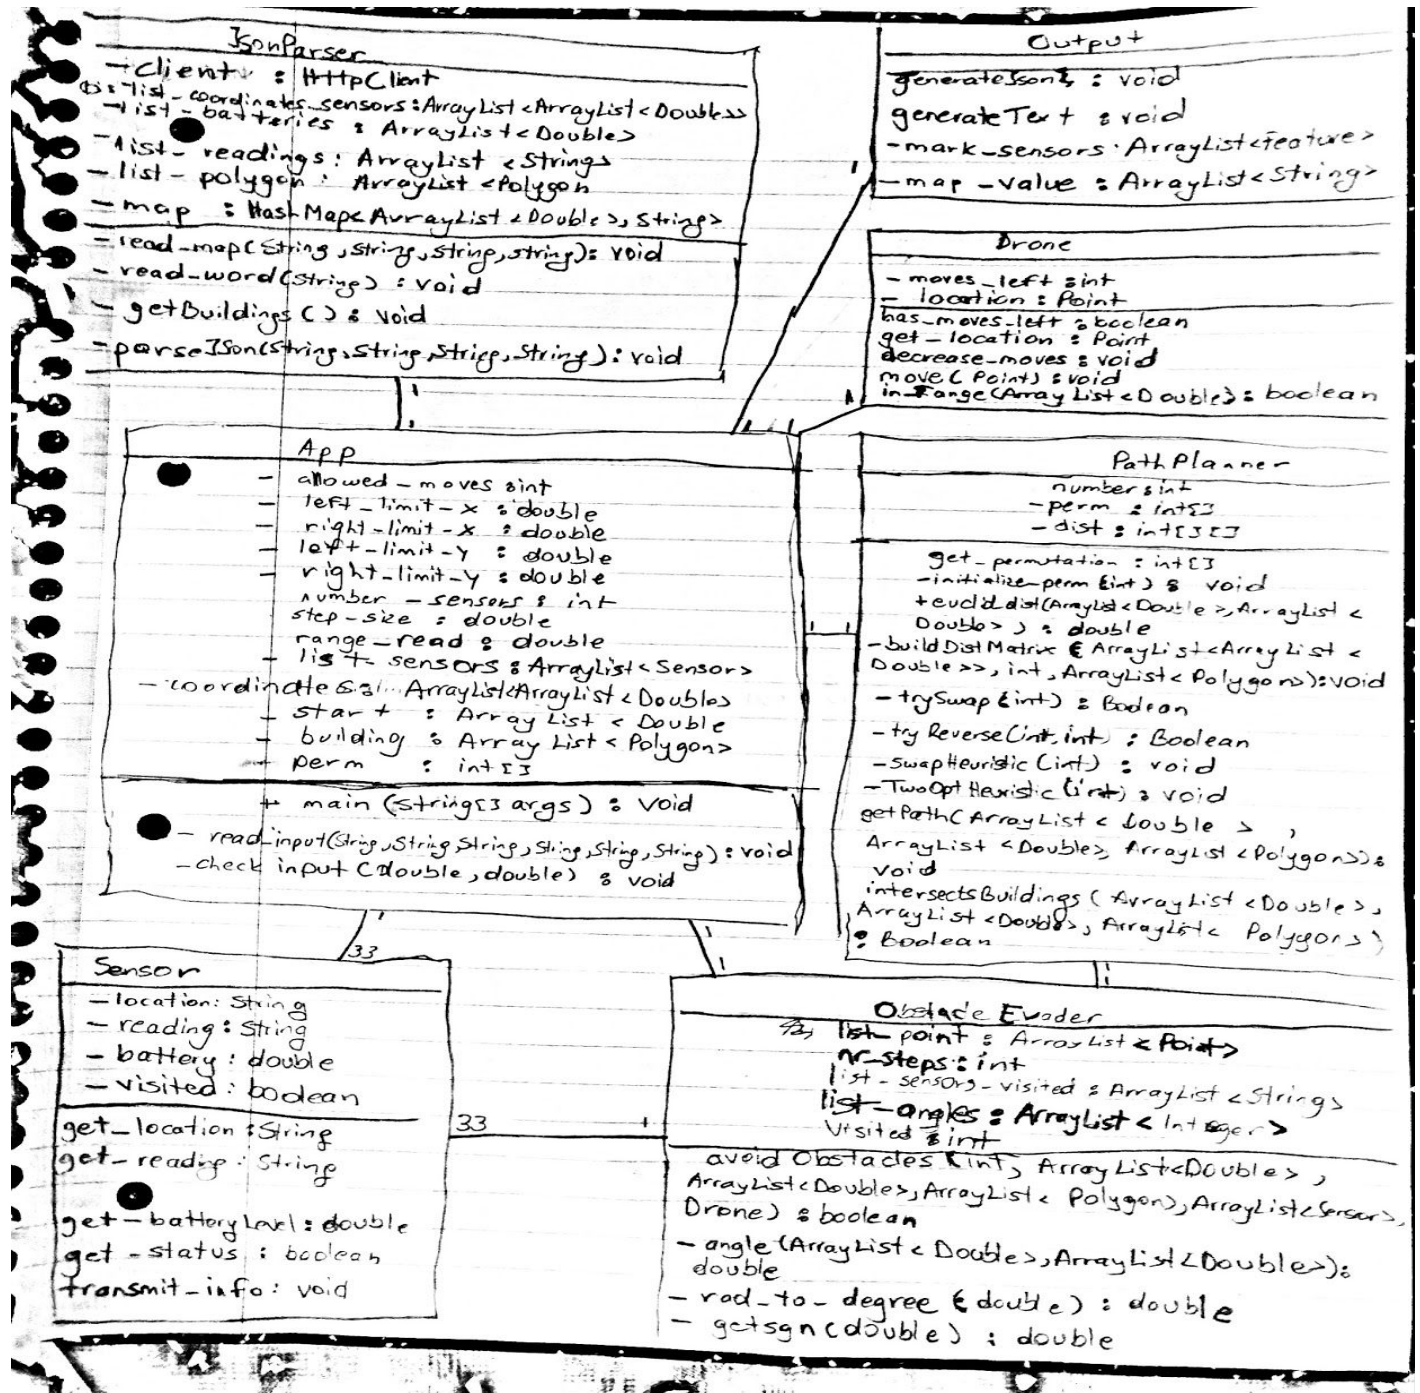 JsonParser
- client : HttpClient
list-coordinates_sensors:ArrayList<ArrayList<Double>>
-list-batteries : ArrayList<Double>
-list- readings: ArrayList <String>
- list - polygon : ArrayList <Polygon
- map : HashMap<ArrayList <Double>, String>
- read-map(String, String, String, String): void
- read-word(String) : void
- getBuildings () : void
-parseJson(String, String, String, String): void
Output
generateJson : void
generateText : void
-mark-sensors: ArrayList<feature>
-map -value : ArrayList<String>
Drone
- moves-left : int
- location : Point
has-moves-left : boolean
get-location : Point
decrease-moves : void
move( Point) : void
in-range(Array List<Double>) : boolean
1
1
1
1
1
1
App
- allowed-moves : int
- left-limit-x : double
- right-limit-x : double
- left-limit-y : double
- right-limit-y : double
number -sensors : int
step-size : double
range-read : double
- list- sensors : ArrayList<Sensor>
- coordinates ArrayList<ArrayList<Double>
- start : Array List < Double
- building : Array List< Polygon>
- perm : int[]
+ main (String[] args) : void
- read-input(String, String, String, String, String, String) : void
-check input (double, double) : void
1 1
PathPlanner
number : int
-perm : int[]
-dist : int[][]
get-permutation : int[]
-initialize-perm (int) : void
+euclid.dist(ArrayList<Double>, ArrayList <
Double> ) : double
-buildDistMatrix (ArrayList<ArrayList <
Double>>, int, ArrayList< Polygon>): void
- trySwap (int) : Boolean
- try Reverse(int, int) : Boolean
-swapHeuristic (int) : void
-TwoOpt Heuristic (int) : void
getPath( ArrayList < Double > ,
ArrayList <Double>, ArrayList <Polygon>) :
void
intersectsBuildings ( ArrayList <Double>,
ArrayList <Double>, ArrayList< Polygon> )
: Boolean
1
33
1
1
1
1
Sensor
- location: String
- reading : String
- battery : double
- visited : boolean
get-location : String
get-reading : String
get-batteryLevel : double
get -status : boolean
transmit-info : void
33 1
Obstacle Evader
list-point : ArrayList <Point>
nr-steps : int
list-sensors-visited : ArrayList <String>
list-angles : ArrayList < Integer >
visited : int
avoid Obstacles (int, ArrayList<Double> ,
ArrayList<Double>, ArrayList< Polygon>, ArrayList<Sensor>,
Drone) : boolean
- angle (ArrayList < Double>, ArrayList <Double>):
double
- rad-to-degree (double) : double
- getsgn (double) : double